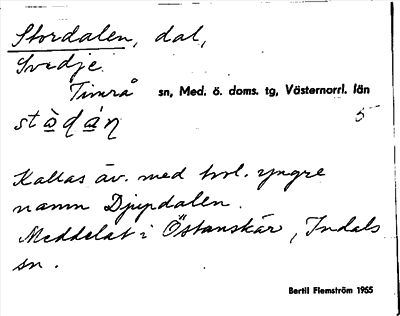 Stordalen, dal,
Svedje.
Timrå sn, Med. ö. doms. tg, Västernorrl. län
stàdánˌ 5
Kallas äv. med trol. yngre
namn Djupdalen.
Meddelat i Östanskär, Indals
sn.
Bertil Flemström 1955